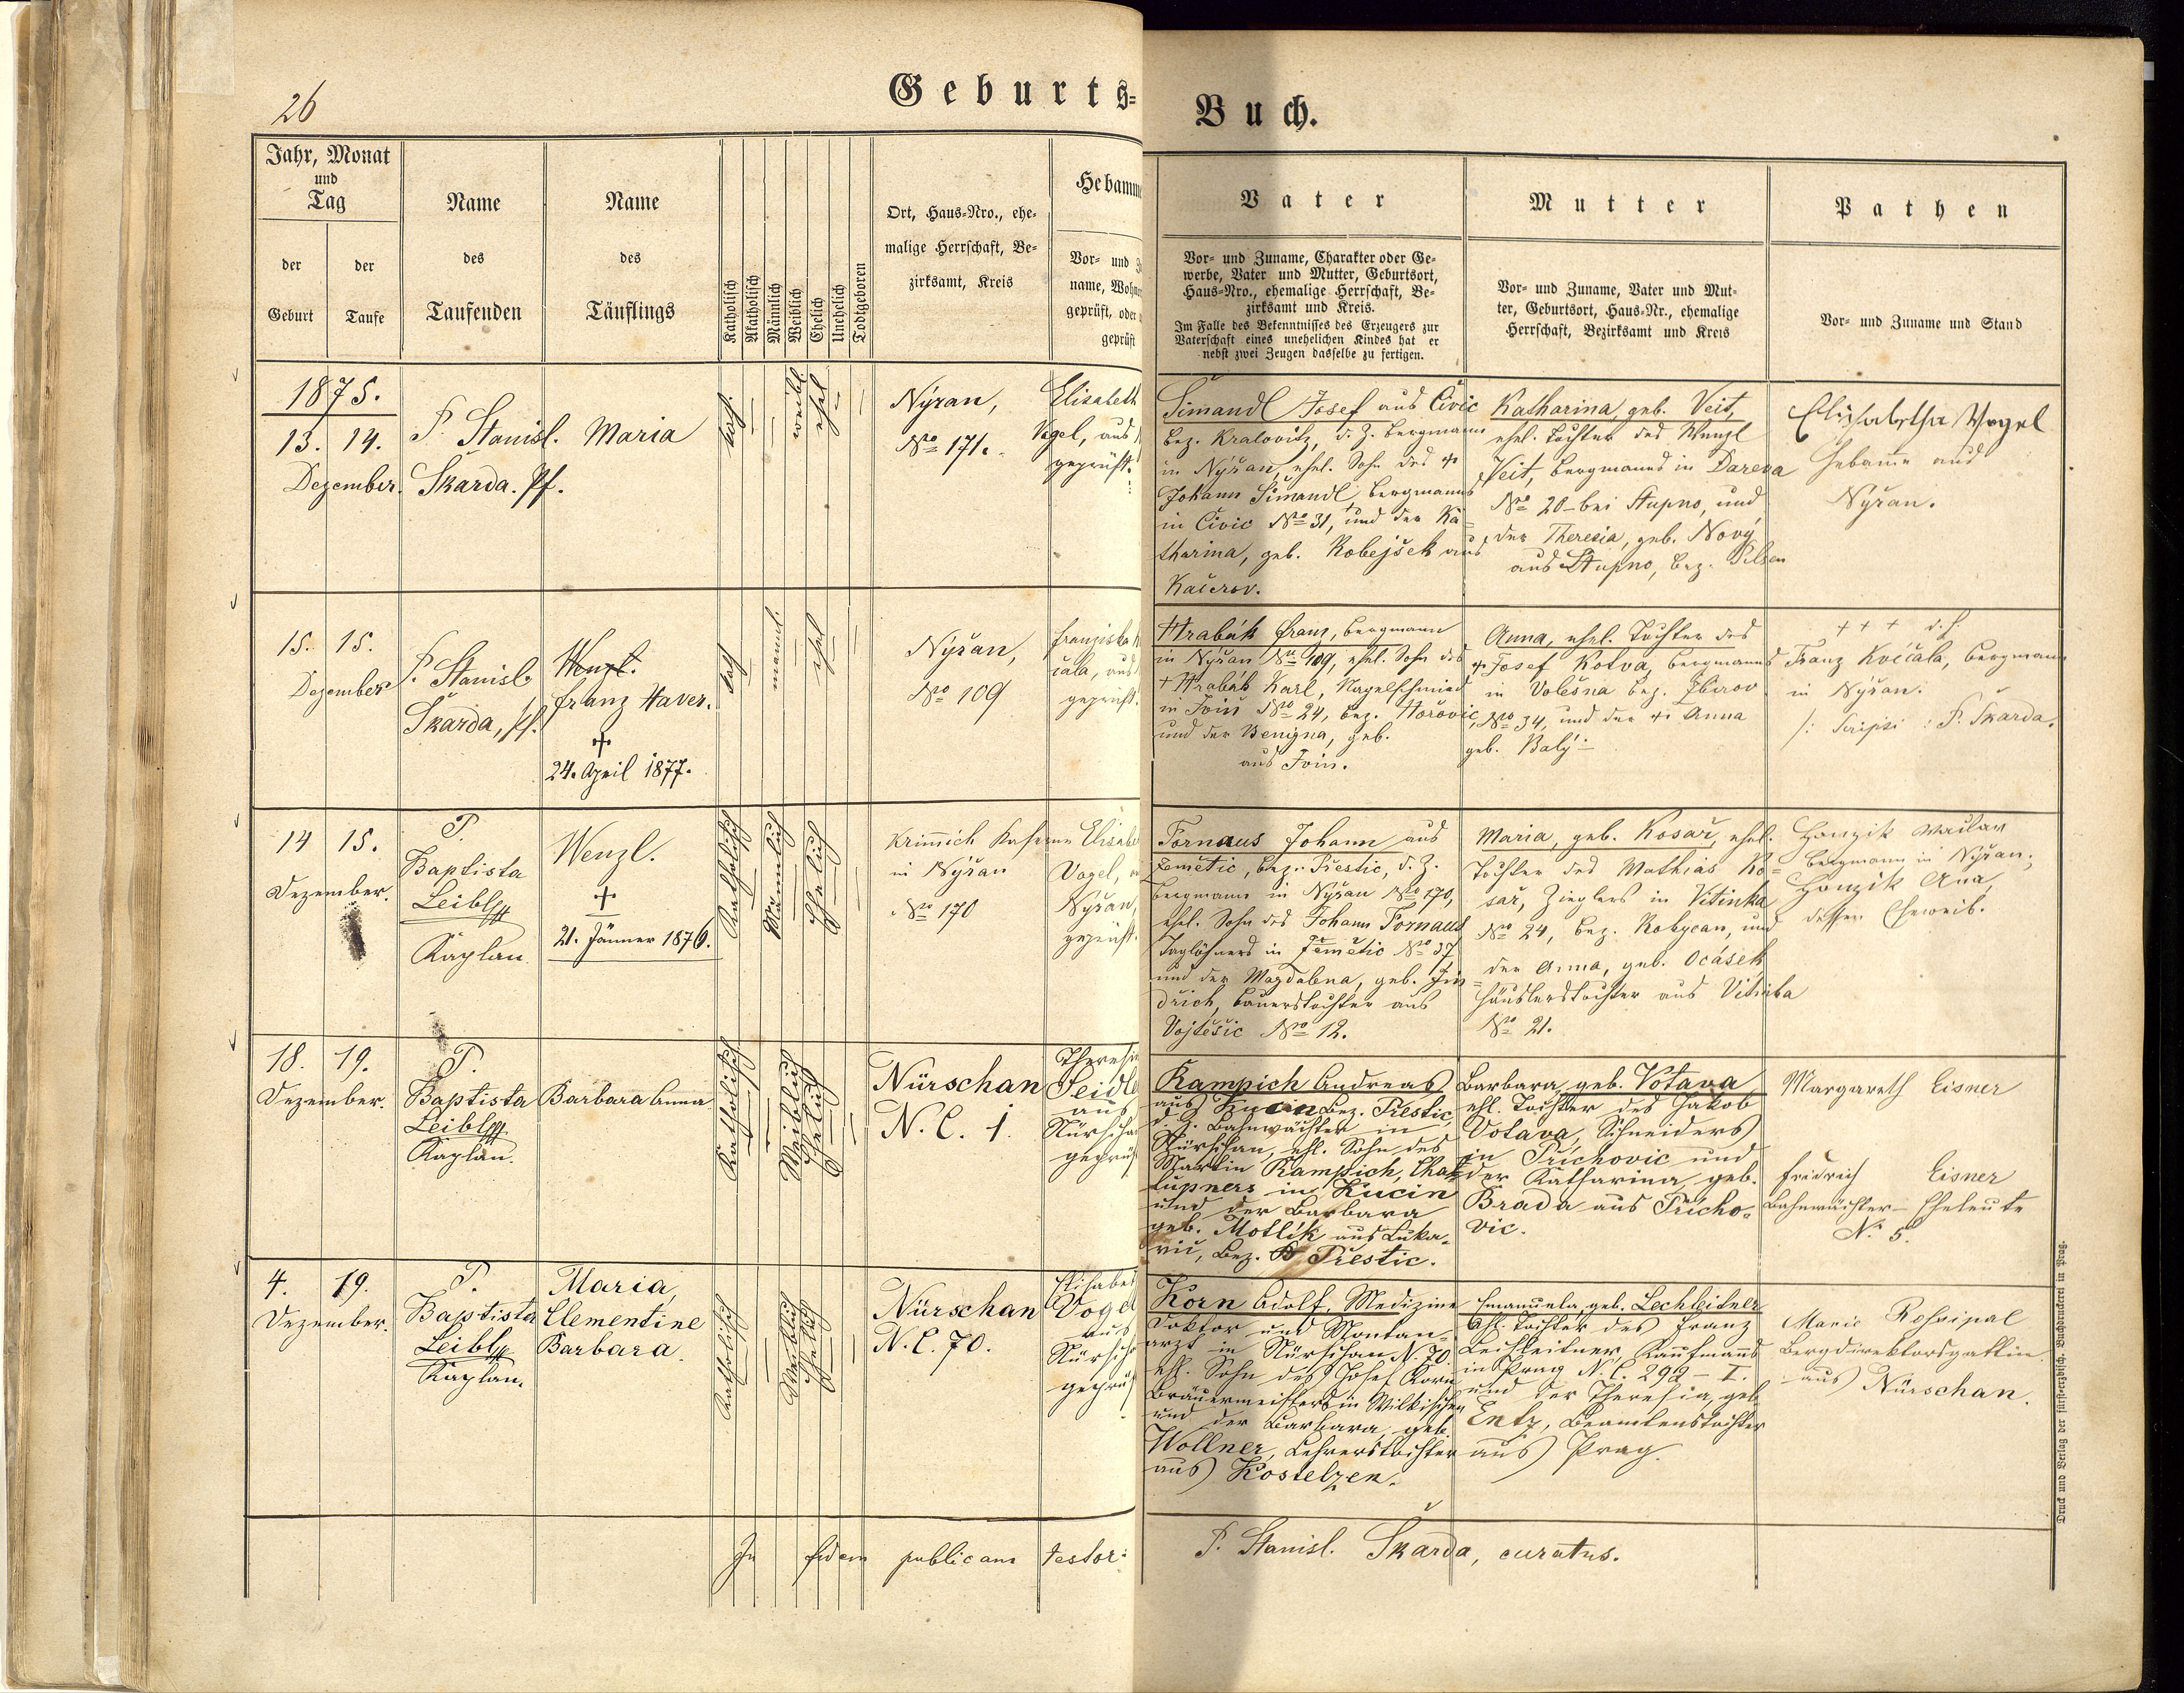 26
Geburts=
Buch.
Jahr, Monat
und
Tag
der
Geburt
der
Taufe
Name
des
Taufenden
Name
des
Täuflings
Katholisch
Akatholisch
Männlich
Weiblich
Ehelich
Unehelich
Todtgeboren
Ort, Haus-Nro., ehe-
malige Herrschaft, Be-
zirksamt, Kreis
Hebamme
Vor- und
name, Wohn
geprüft, oder
geprüft
Vater
Vor- und Zuname, Charakter oder Ge-
werbe, Vater und Mutter, Geburtsort,
Haus-Nro., ehemalige Herrschaft, Be-
zirksamt und Kreis.
Im Falle des Bekenntnisses des Erzeugers zur
Vaterschaft eines unehelichen Kindes hat er
nebst zwei Zeugen dasselbe zu fertigen.
Mutter
Vor- und Zuname, Vater und Mut-
ter, Geburtsort, Haus-Nr., ehemalige
Herrschaft, Bezirksamt und Kreis
Pathen
Vor- und Zuname und Stand
1875.
13. 14.
Dezember.
P. Stanisl.
Škarda. Pf.
Maria
kath.
weibl.
ehel
Nýřan,
Nro 171.
Elisabeth
Vogel, aus
geprüft.
Šimandl Josef aus Čivic
Bez. Kralovitz, d. Z. Bergmann
in Nyřan, ehel. Sohn des +
Johann Šimandl, Bergmanns
in Čivic Nro 31, und der + Ka-
tharina, geb. Robejšek aus
Kačerov.
Katharina, geb. Veit,
ehel. Tochter des Wenzl
Veit, Bergmanns in Dareva
No 20 - bei Stupno, und
der Theresia, geb. Nový
aus Stupno, Bez. Pilsen
Elisabetha Vogel
Hebame aus
Nyřan.
15. 15.
Dezember
P. Stanisl.
Škarda, Pf.
Wenzl.
Franz Xaver.
+
24. April 1877.
kath
männl.
ehel
Nyřan,
Nro 109
Franziska
čala, aus
geprüft.
Hrabák Franz, Bergmann
in Nyřan Nro 109, ehel. Sohn des
+ Hrabák Karl, Nagelschmied
in Ivin Nro 24, Bez. Hořovic,
und der Benigna, geb.
aus Ivin.
Anna, ehel. Tochter des
+ Josef Kotva, Bergmanns
in Volešna Bez. Zbirov
Nro 34, und der + Anna
geb. Balý
+ + + d. h.
Franz Kvíčala, Bergmann
in Nyřan.
/: Scripsi : P. Škarda.
14 15.
Dezember.
P.
Baptista
Leibl
Kaplan
Wenzl.
+
21. Jänner 1876.
Katholisch
Männlich
Ehelich
Krimich Kaserne
in Nyřan
Nro 170
Elisabe
Vogel,
Nyřan,
geprüft.
Fornaus Johann aus
Zemětic, Bez. Přestic, d. Z.
Bergmann in Nyřan Nro 170,
ehel. Sohn des Johann Fornaus
Taglöhners in Zemětic Nro 37
und der Magdalena, geb. Jin-
dřich, Bauerstochter aus
Vojtěšic Nro 12.
Maria, geb. Kosař, ehel.
Tochter des Mathias Ko-
sař, Zieglers in Vitinka
Nro 24, Bez. Rokycan, und
der Anna, geb. Ocásek
Häuslerstochter aus Vitinka
Nro 21.
Honzik Waclav
Bergmann in Nyřan;
Honzik Ana,
dessen Eheweib.
18. 19.
Dezember.
P.
Baptista
Leibl
Kaplan.
Barbara Anna
Katholisch
Weiblich
Ehelich
Nürschan
N. C. 1.
Theresia
Seidl
aus
Nürscha
geprüf
Kampich Andreas
aus Kucin Bez. Přestic,
d. Z. Bahnwächter in
Nürschan, ehl. Sohn des
Martin Kampich, Cha-
lupners in Kucin
und der Barbara
geb. Motlik aus Luka-
vic, Bez. Přestic.
Barbara geb. Votava
ehl. Tochter des Jakob
Votava, Schneiders
in Přichovic und
der Katharina, geb.
Brada aus Přicho-
vic.
Margareth Eisner
Fridrich Eisner
Bahnwächter-Eheleute
N. 5.
4. 19.
Dezember.
P.
Baptista
Leibl
Kaplan.
Maria,
Clementine
Barbara.
Katholisch
Weiblich
Ehelich
Nürschan
N. C. 70.
Elisabet
Vogel
aus
Nürscha
geprüf
Korn Adolf, Medizine
Doktor und Montan-
arzt in Nürschan N. 70
ehl. Sohn des Josef Korn
Bräuermeisters in Wilkischen
und der Barbara, geb.
Wollner, Lehrerstochter
aus Kostelzen.
Emanuela, geb. Lechleitner
ehl. Tochter des Franz
Lechleitner, Kaufmanns
in Prag N. C. 292 - I.
und der Theresia, geb.
Entz, Beamtenstochter
aus Prag.
Marie Rossipal
Bergdirektorsgattin
aus Nürschan.
In fidem publicam testor:
P. Stanisl. Škarda, curatus.
Druck und Verlag der fürst-erzbisch. Buchdruckerei in Prag.